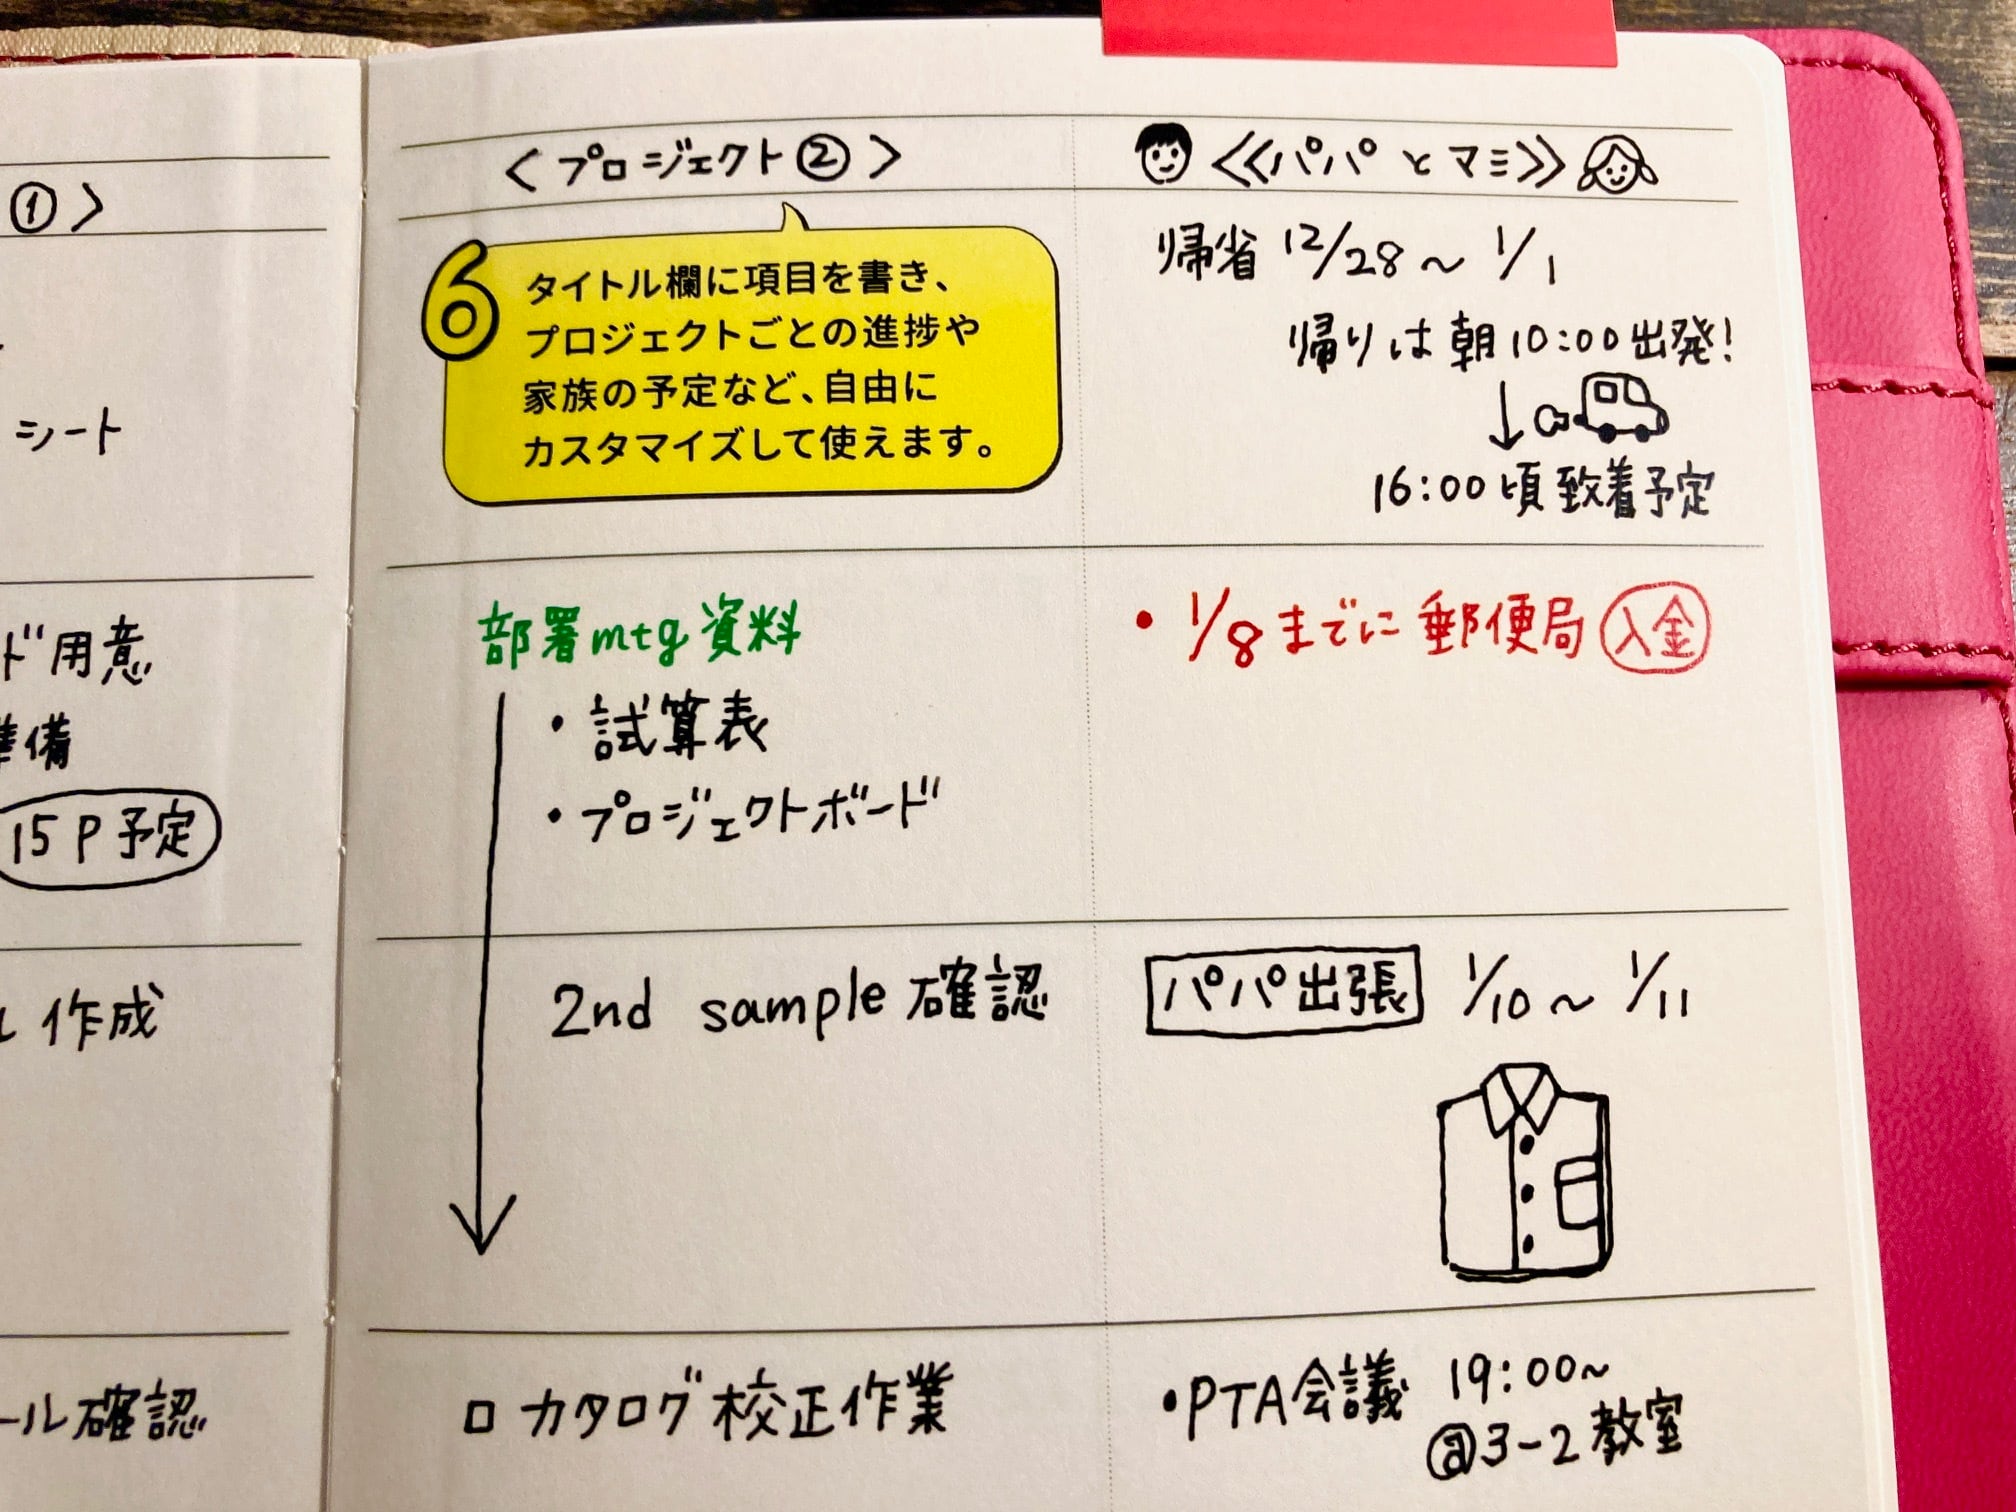 ①>
シート
ド用意
準備
15P予定
作成
ール確認
<プロジェクト②>
6
タイトル欄に項目を書き、
プロジェクトごとの進捗や
家族の予定など、自由に
カスタマイズして使えます。
部署mtg資料
・試算表
・プロジェクトボード
2nd sample確認
□ カタログ校正作業
≪パパとマミ≫
帰省 12/28〜1/1
帰りは朝10:00出発!
↓
16:00頃致着予定
・1/8までに郵便局 入金
パパ出張 1/10〜1/11
・PTA会議 19:00〜
@3-2教室